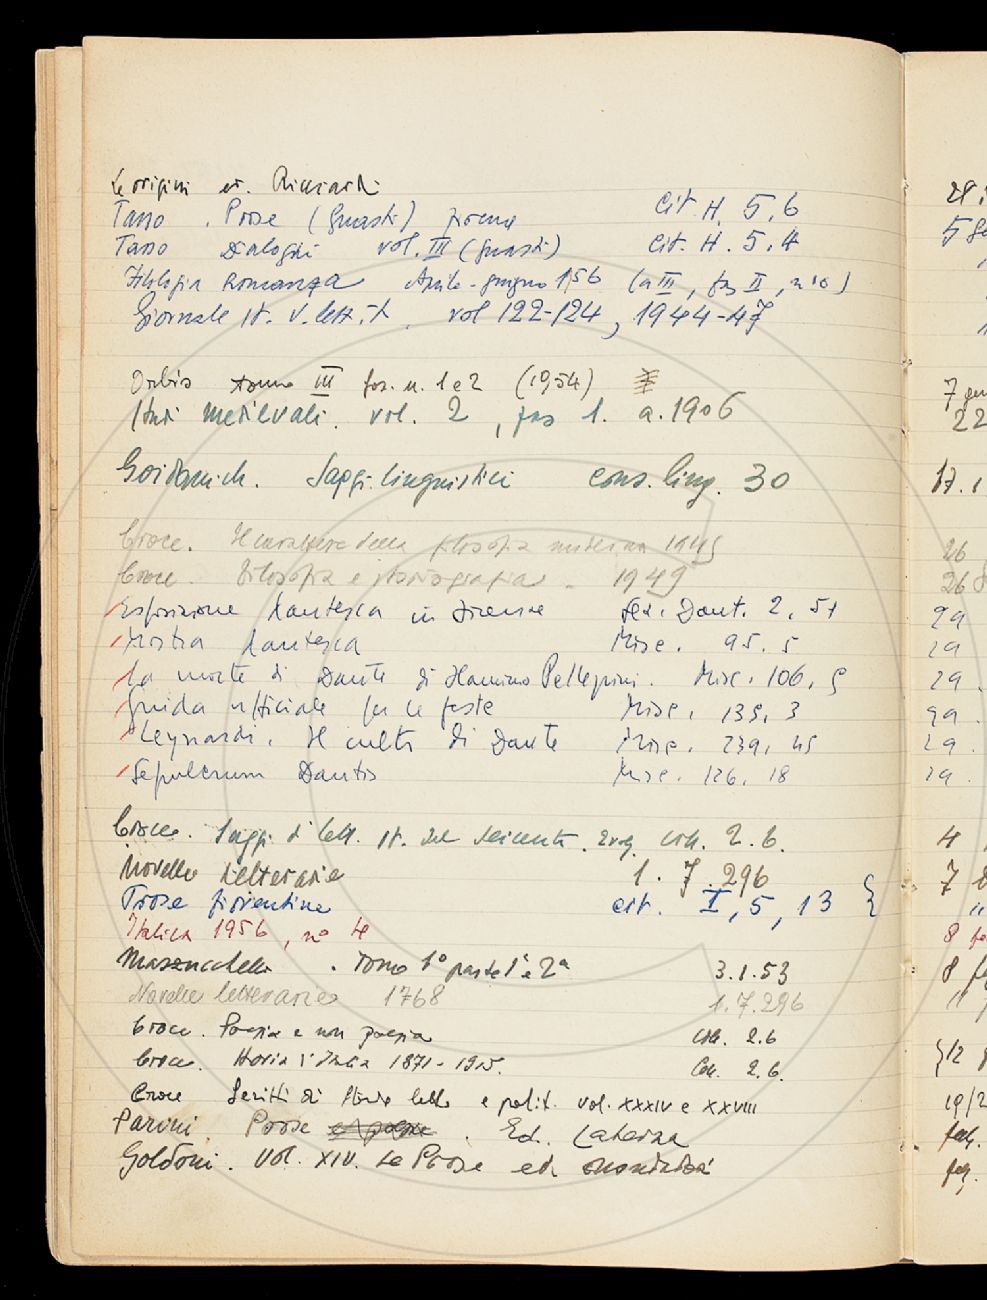 Le origini ed. Ricciardi
Tasso. Prose (Guasti) Cit. H. 5.6
28.
Tasso Dialoghi vol. III (Guasti) Cit. H. 5.4
5
Filologia Romanza Aprile-giugno 1956 (a III, fas II, n° 10)
Giornale st. d. lett. it. vol 122-124, 1944-47
Orbis tomo III fas. n. 1 e 2 (1954)
7
Studi medievali. vol. 2, fas 1. a. 1906
22
Goidanich. Saggi linguistici cons. ling. 30
17.1
Croce. Il carattere della filosofia moderna 1945
26
Croce. Filosofia e storiografia - 1949
26
Esposizione dantesca in Firenze Sez. Dant. 2. 51
29
Mostra dantesca Misc. 95.5
29
La morte di Dante di Flaminio Pellegrini. Misc. 106.9
29.
Guida ufficiale per le feste Misc. 139.3
29.
Leynardi. Il culto di Dante Misc. 239. 45
29.
Sepulcrum Dantis Misc. 126. 18
29.
Croce. Saggi di lett. it. del seicento. Coll. 2.6.
4
Novelle Letterarie 1.7.296
7
Prose fiorentine cit. I, 5, 13 }
"
Italica 1956, n° 4
8
Mazzuchelli. Tomo 1° parte 1ª e 2ª 3.1.53
8
Novelle letterarie 1768 1.7.296
"
Croce. Poesia e non poesia Coll. 2.6
Croce. Storia d'Italia 1871-1915. Coll. 2.6.
{12
Croce Scritti di storia lett. e polit. vol. XXXIV e XXVIII
19/2
Parini Prose. Ed. Laterza
Goldoni. Vol. XIV. Le Prose ed. Mondadori